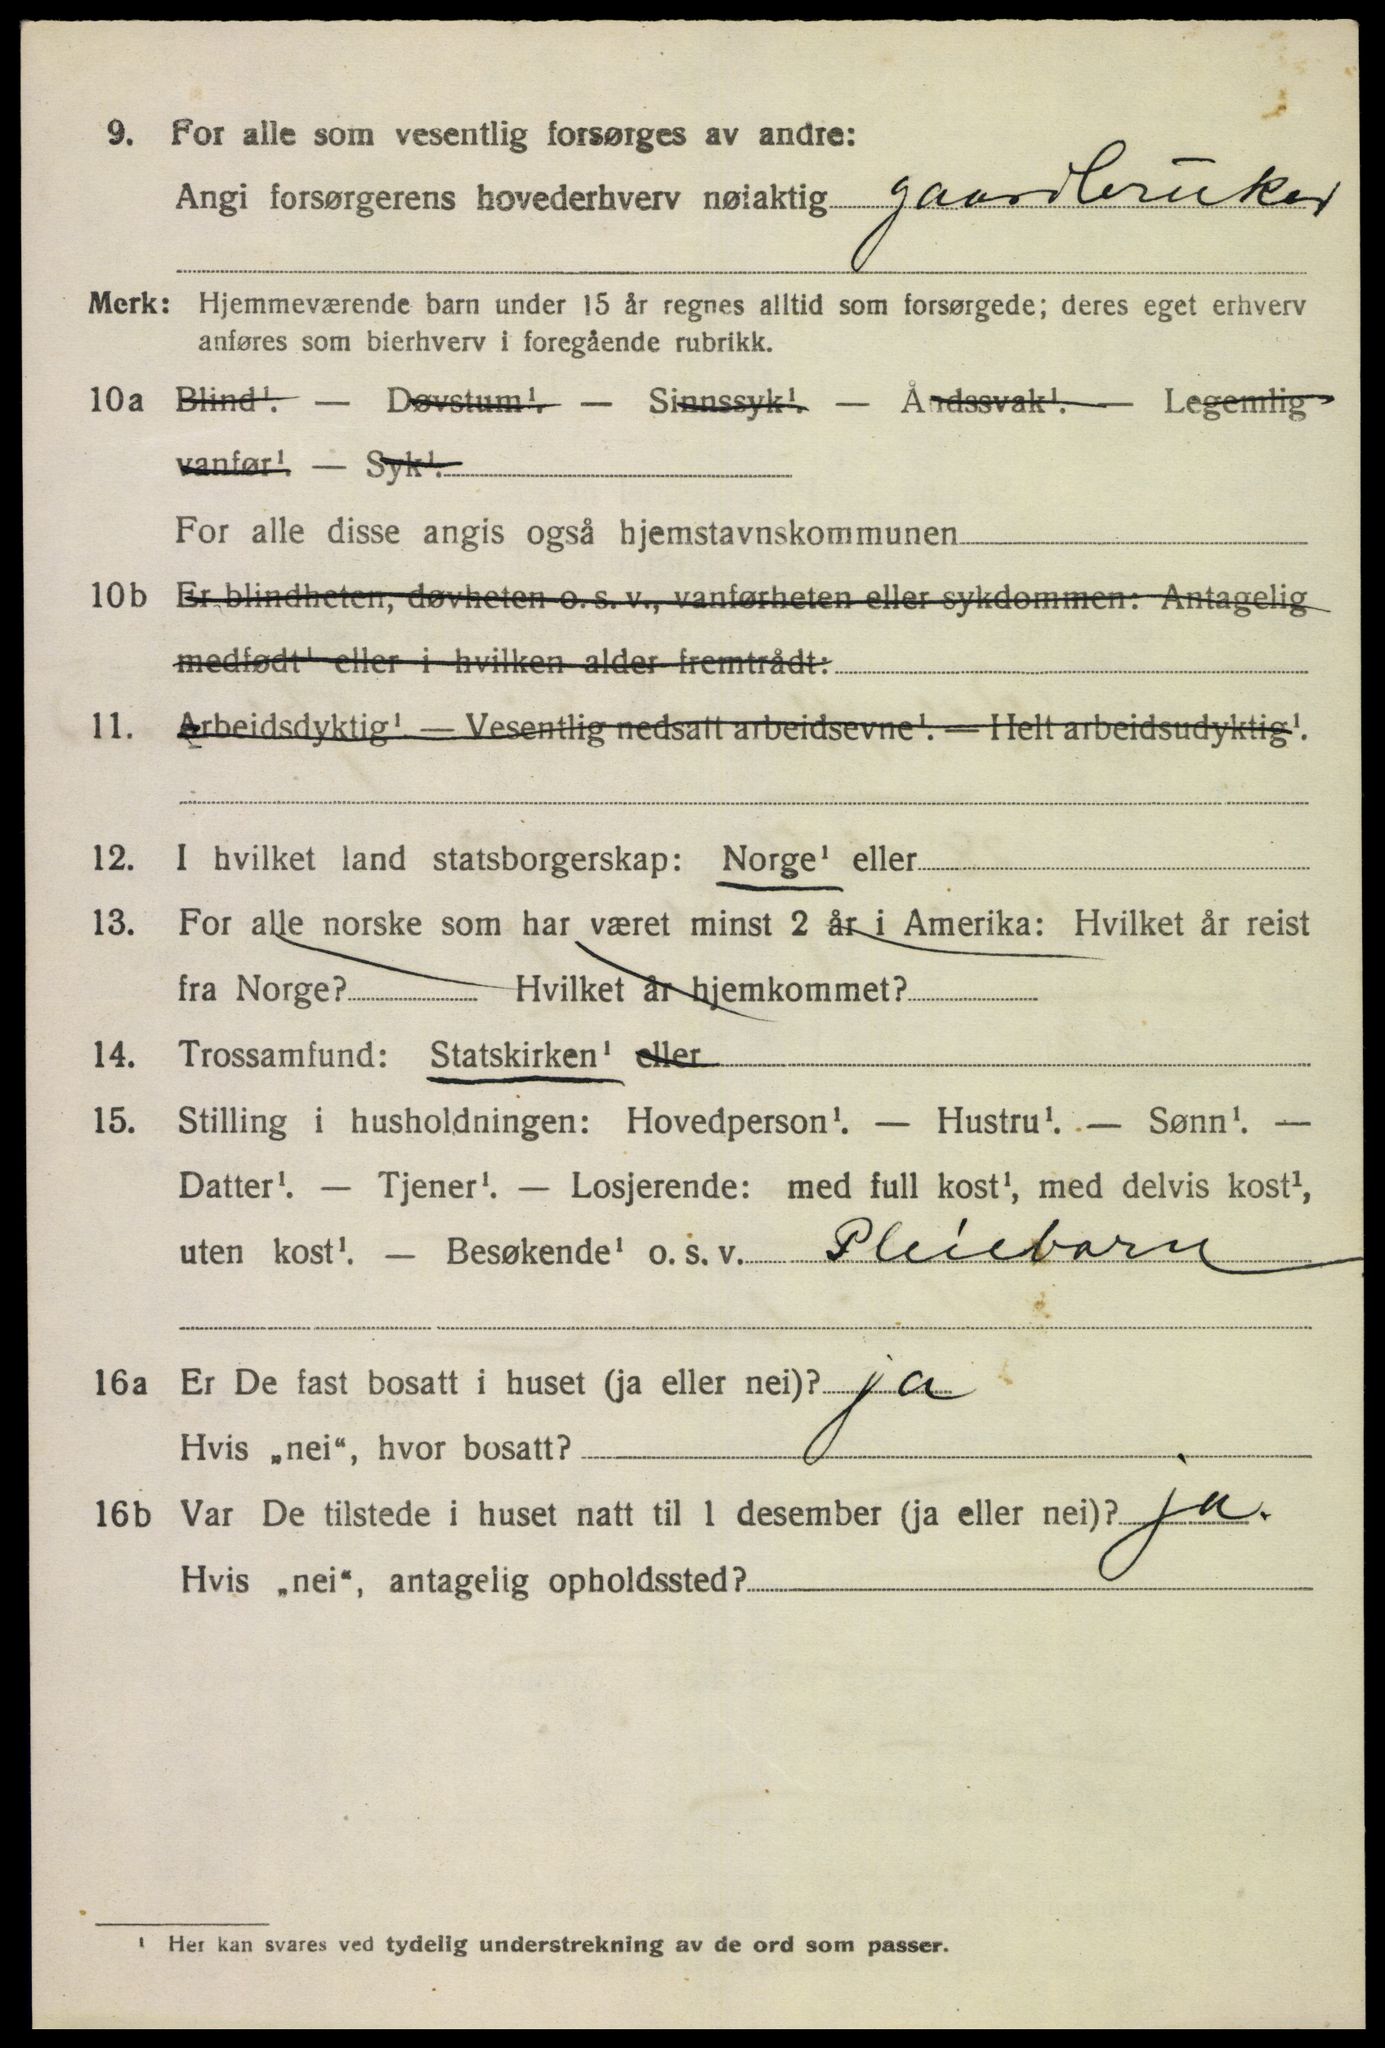 9. For alle som vesentlig forsørges av andre:
Angi forsørgerens hovederhverv nøiaktig gaardbruker
Merk: Hjemmeværende barn under 15 år regnes alltid som forsørgede; deres eget erhverv
anføres som bierhverv i foregående rubrikk.
10a Blind¹. — Døvstum¹. — Sinnssyk¹. — Åndssvak¹. — Legemlig
vanfør¹. — Syk¹.
For alle disse angis også hjemstavnskommunen
10b Er blindheten, døvheten o. s. v., vanførheten eller sykdommen: Antagelig
medfødt¹ eller i hvilken alder fremtrådt:
11. Arbeidsdyktig¹. — Vesentlig nedsatt arbeidsevne¹. — Helt arbeidsudyktig¹.
12. I hvilket land statsborgerskap: Norge¹ eller
13. For alle norske som har været minst 2 år i Amerika: Hvilket år reist
fra Norge? Hvilket år hjemkommet?
14. Trossamfund: Statskirken¹ eller
15. Stilling i husholdningen: Hovedperson¹. — Hustru¹. — Sønn¹. —
Datter¹. — Tjener¹. — Losjerende: med full kost¹, med delvis kost¹,
uten kost¹. — Besøkende¹ o. s. v. Pleiebarn
16a Er De fast bosatt i huset (ja eller nei)? ja
Hvis „nei“, hvor bosatt?
16b Var De tilstede i huset natt til 1 desember (ja eller nei)? ja.
Hvis „nei“, antagelig opholdssted?
¹ Her kan svares ved tydelig understrekning av de ord som passer.